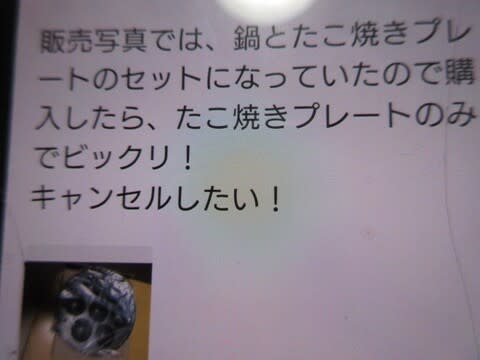 販売写真では、鍋とたこ焼きプレ
ートのセットになっていたので購
入したら、たこ焼きプレートのみ
でビックリ！
キャンセルしたい！